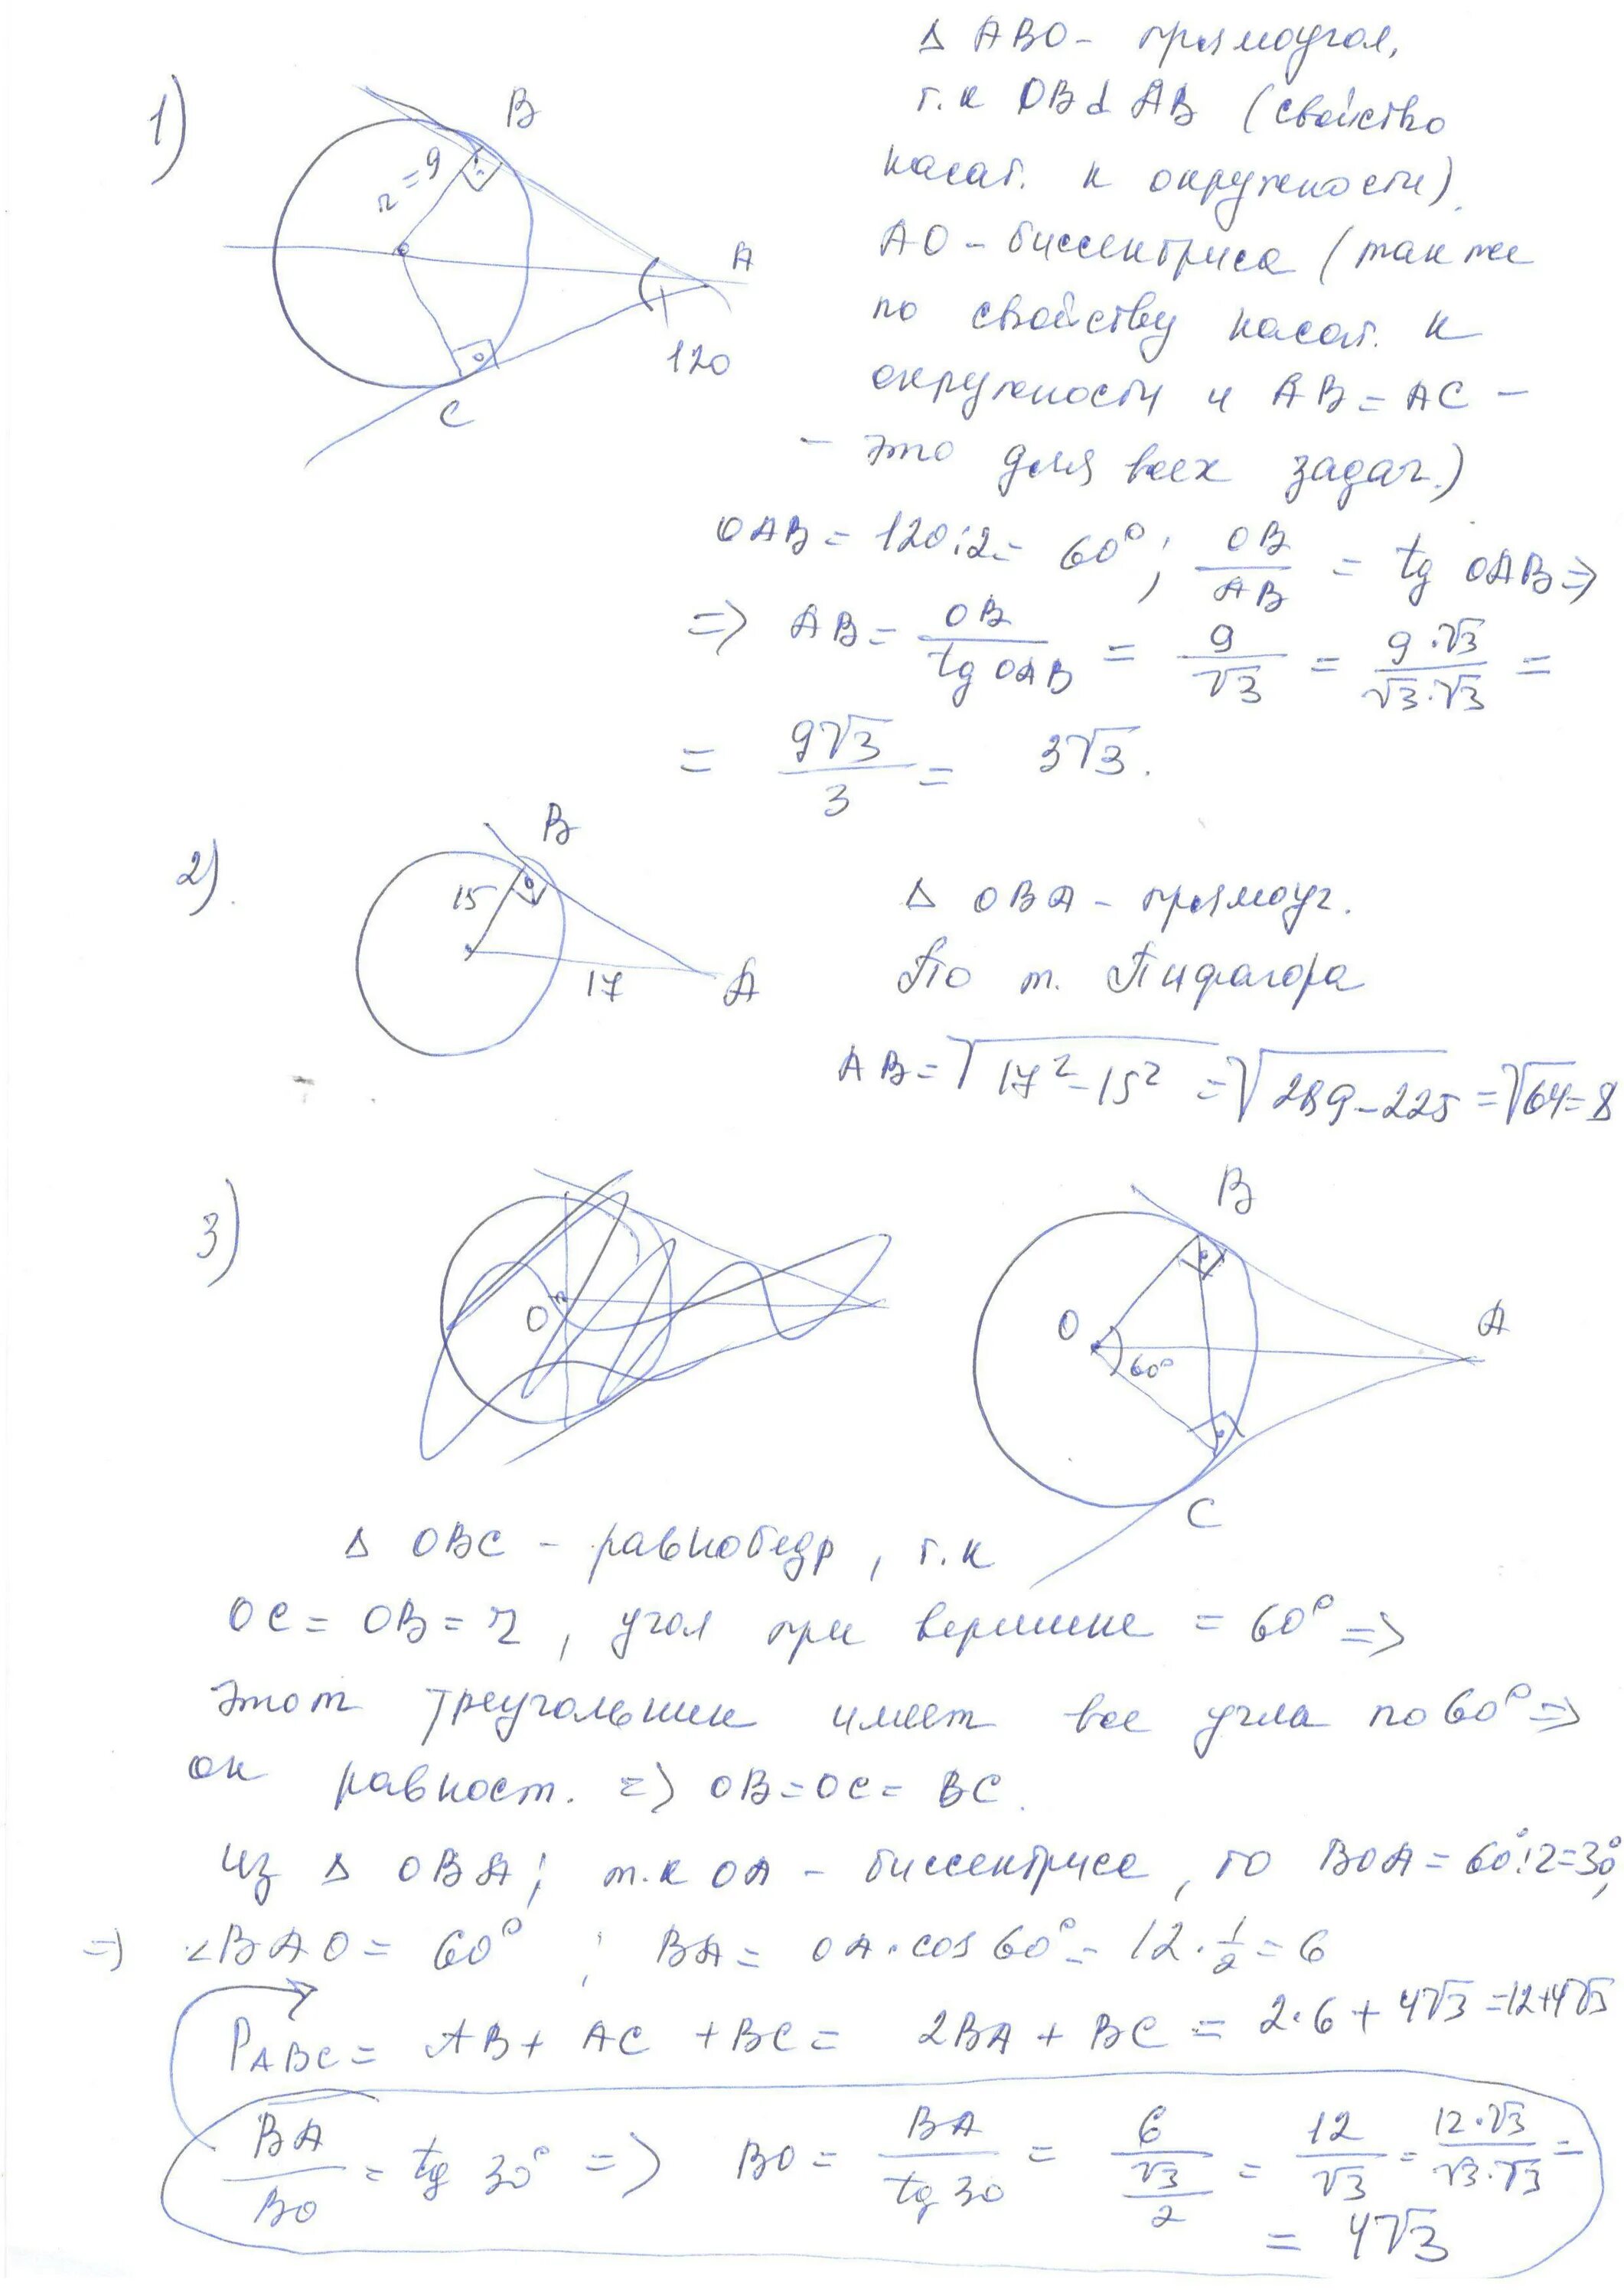 1)
B
r = 9
A
120
C
Δ ABO - прямоугол,
т.к OB ⊥ AB (свойство
касат. к окружности).
AO - биссектриса (так же
по свойству касат. к
окружности и AB = AC -
- это для всех задач.)
OAB = 120:2 = 60°; OB/AB = tg OAB =>
=> AB = OB/tg OAB = 9/√3 = 9·√3/√3·√3 =
= 9√3/3 = 3√3.
2).
B
15
17
A
Δ OBA - прямоуг.
По т. Пифагора
AB = √17²-15² = √289-225 = √64 = 8
3)
O
B
O
60°
A
C
Δ OBC - равнобедр, т.к
OC = OB = r, угол при вершине = 60° =>
этот треугольник имеет все угла по 60° =>
он равност. => OB = OC = BC.
Из Δ OBA; т.к OA - биссектриса, то BOA = 60°:2 = 30°,
=> <BAO = 60°; BA = OA·cos 60° = 12·1/2 = 6
P ABC = AB + AC + BC = 2BA + BC = 2·6 + 4√3 = 12+4√3
BA/BO = tg 30° => BO = BA/tg 30 = 6/√3/2 = 12/√3 = 12·√3/√3·√3 =
= 4√3